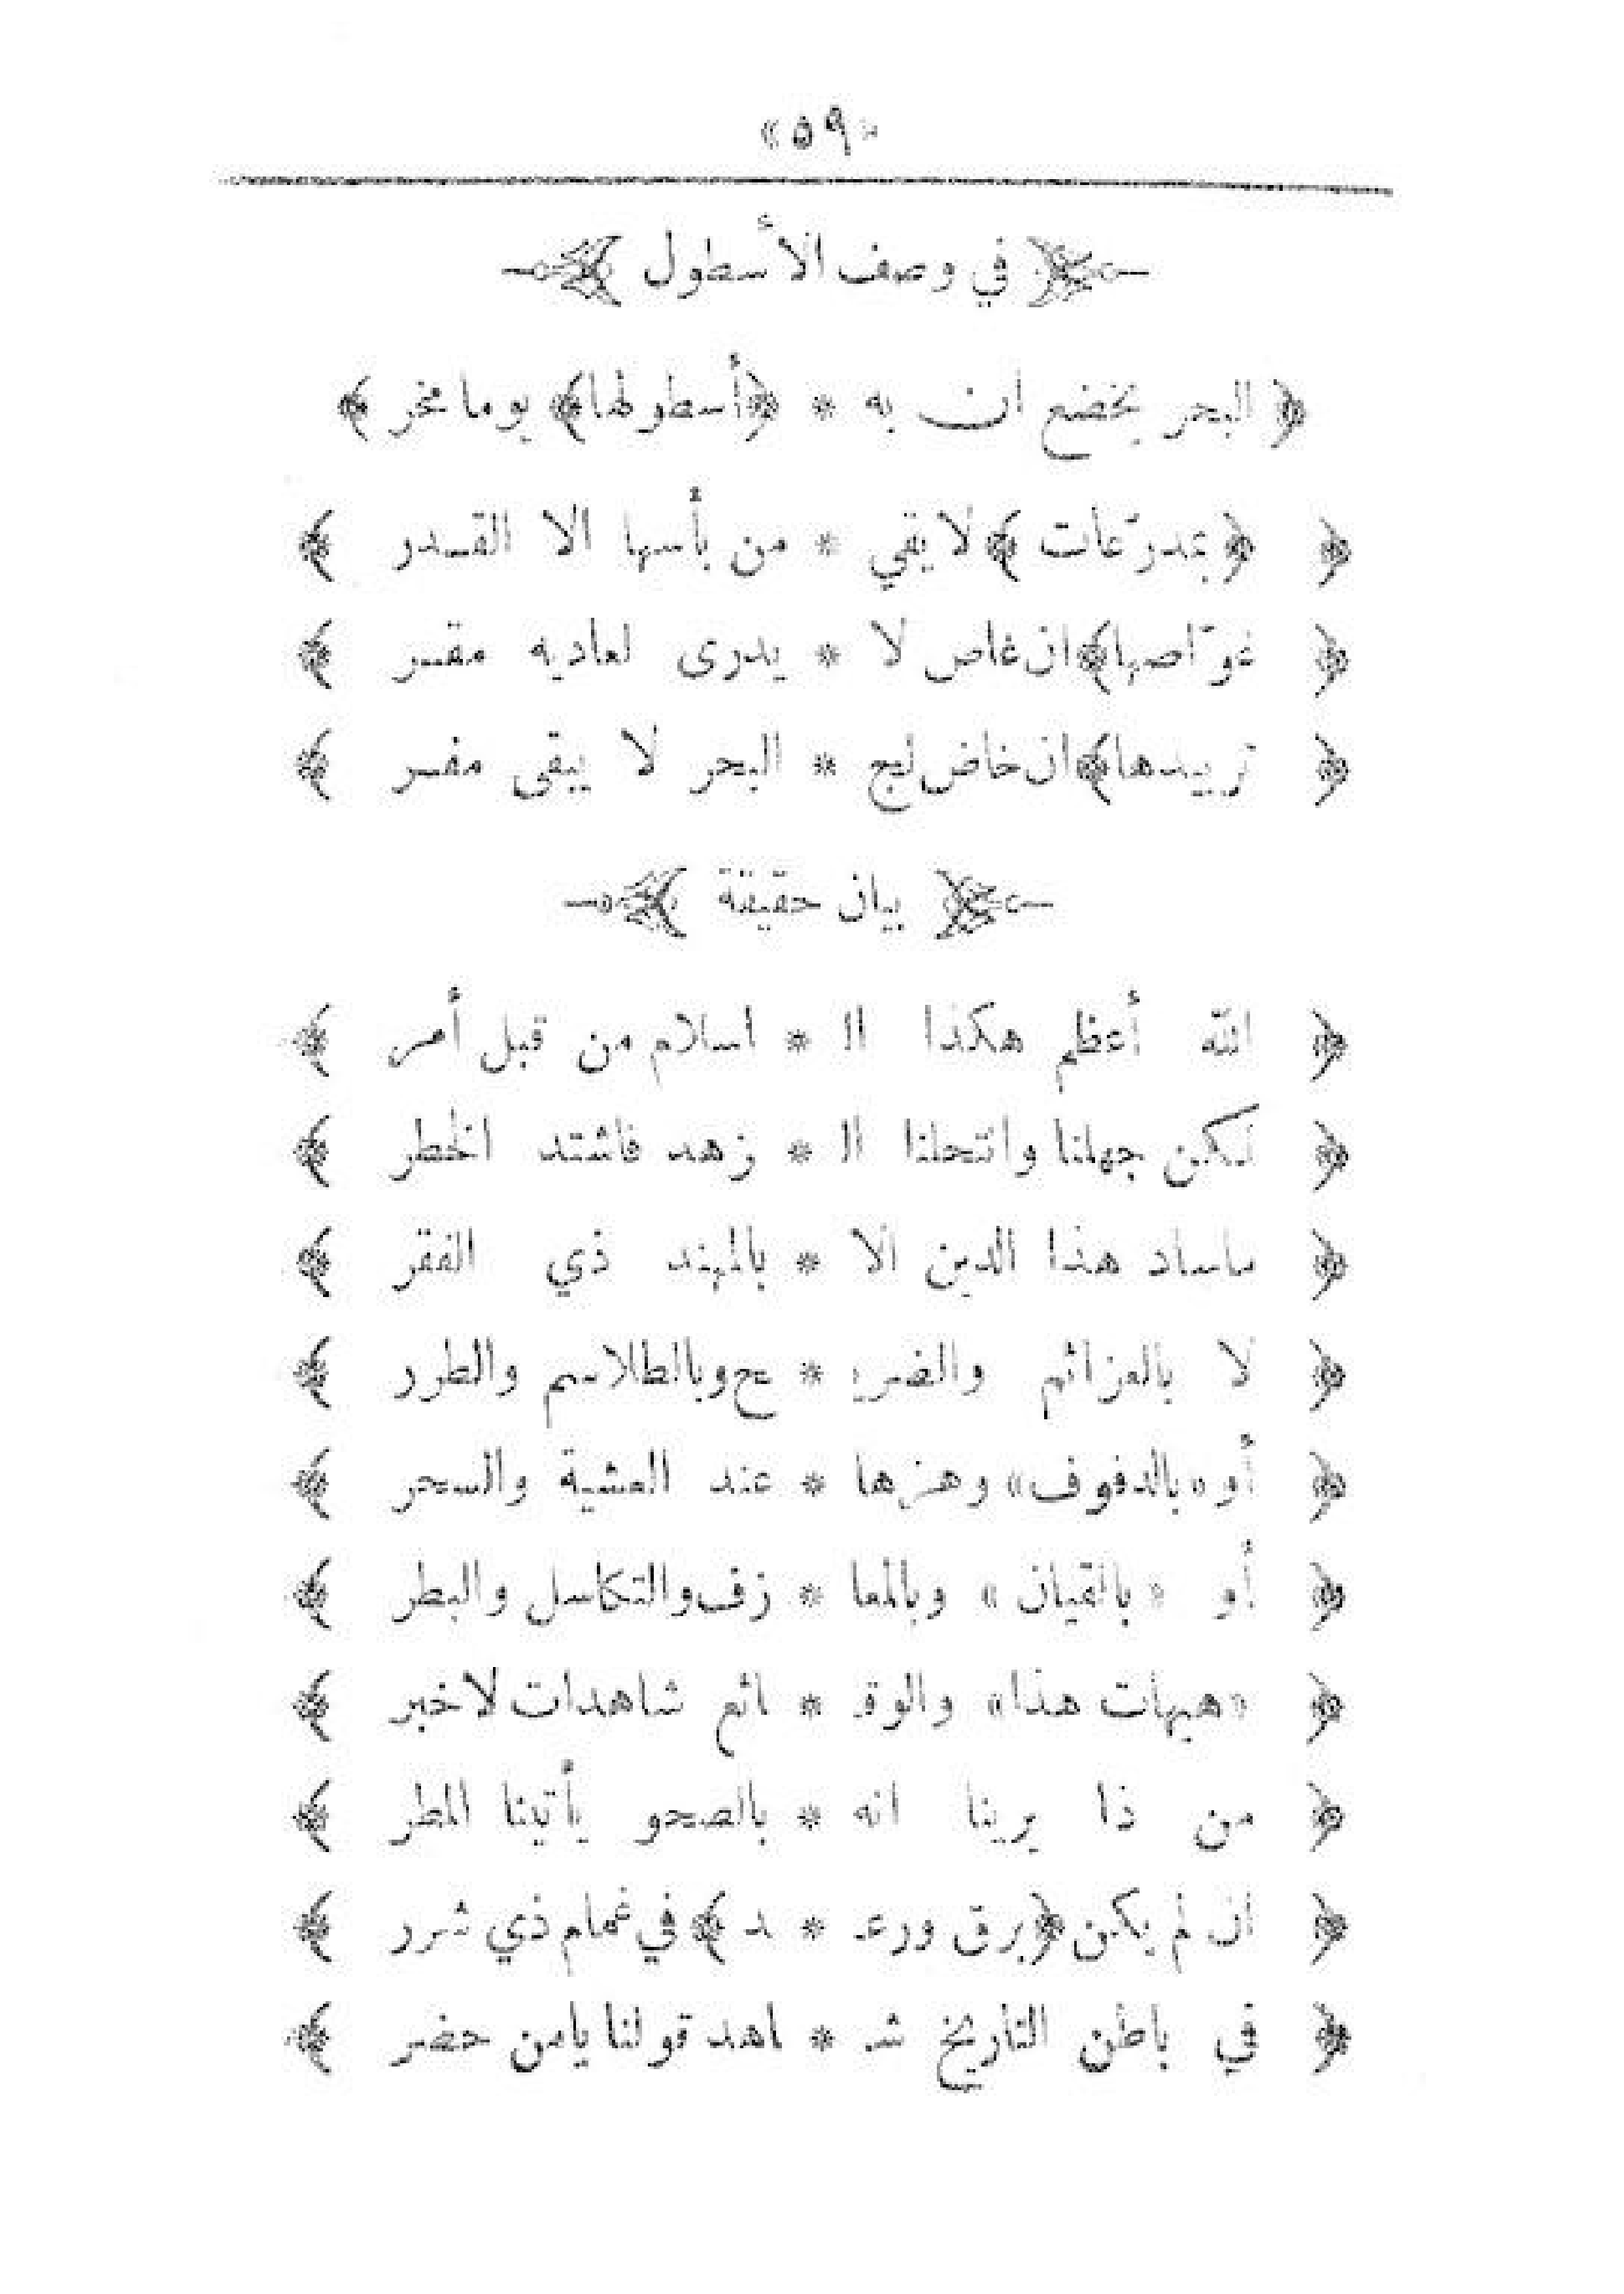 «٥٩»
﴿ في وصف الأسطول ﴾
﴿ البحر يخضع ان به * ﴿أسطولها﴾ يوما مخر ﴾
﴿ ﴿بمدرّعات﴾ لا يقي * من بأسها الا القدر ﴾
﴿ غوّاصها﴾ ان غاص لا * يدرى لعاديه مقر ﴾
﴿ تربيدها﴾ ان خاض لج * البحر لا يبقى مفر ﴾
﴿ بيان حقيقة ﴾
﴿ الله أعظم هكذا ال * اسلام من قبل أمر ﴾
﴿ لكن جهلنا وانتحلنا ال * زهد فاشتد الخطر ﴾
﴿ ماساد هذا الدين الا * بالمهند ذي الفقر ﴾
﴿ لا بالعزائم والضريـ * ـح وبالطلاسم والطرر ﴾
﴿ أو «بالدفوف» وهزها * عند العشية والسحر ﴾
﴿ أو «بالقيان» وبالمعا * زف والتكاسل والبطر ﴾
﴿ «هيهات هذا» والوقـ * ائع شاهدات لا خبر ﴾
﴿ من ذا يرينا انه * بالصحو يأتينا المطر ﴾
﴿ ان لم يكن ﴿برق ورعـ * ـد﴾ في غمام ذي شرر ﴾
﴿ في باطن التاريخ شـ * اهد قولنا يامن حضر ﴾